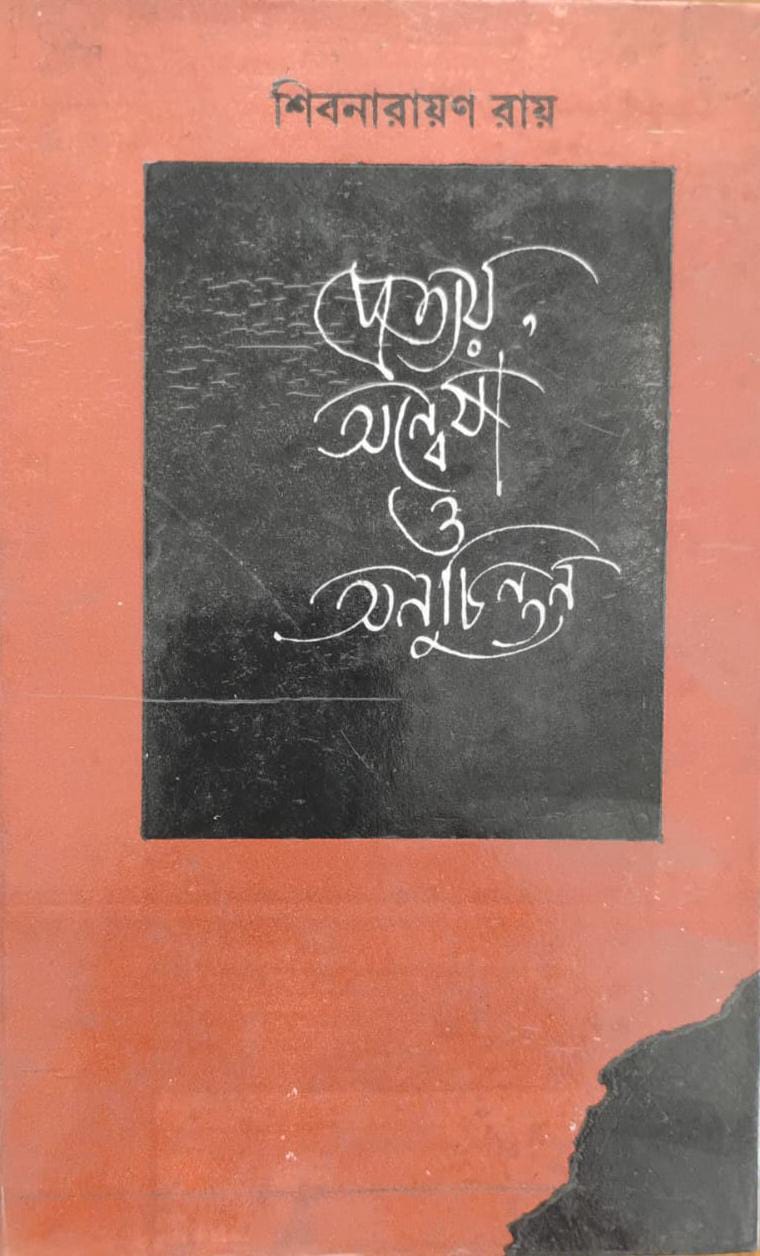 শিবনারায়ণ রায়
প্রত্যয়,
অন্বেষা
ও
অনুচিন্তন